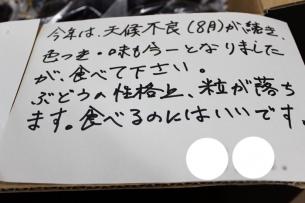 今年は、天候不良(8月)が続き、
色つき・味も今一となりました
が、食べて下さい。
ぶどうの性格上、粒が落ち
ます。食べるのにはいいです。